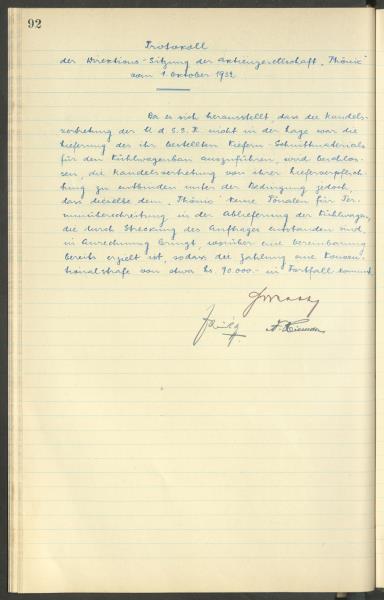 92
Protokoll
der Direktions-Sitzung der Aktiengesellschaft "Phönix"
vom 1 Oktober 1932
Da es sich herausstellt, dass die Handels-
vertretung der U d S.S.R. nicht in der Lage war die
Lieferung des ihr bestellten Kiefern-Schnittmaterials
für den Kühlwagenbau auszuführen, wird beschlos-
sen, die Handelsvertretung von ihrer Lieferverpflich-
tung zu entbinden unter der Bedingung jedoch,
dass dieselbe dem "Phönix" keine Pönalen für Ter-
minüberschreitung in der Ablieferung der Kühlwagen,
die durch Streckung des Auftrages entstanden sind,
in Anrechnung bringt, worüber eine Vereinbarung
bereits erzielt ist, sodass die Zahlung einer Konven-
tionalstrafe von etwa Ls. 90.000.- in Fortfall kommt.